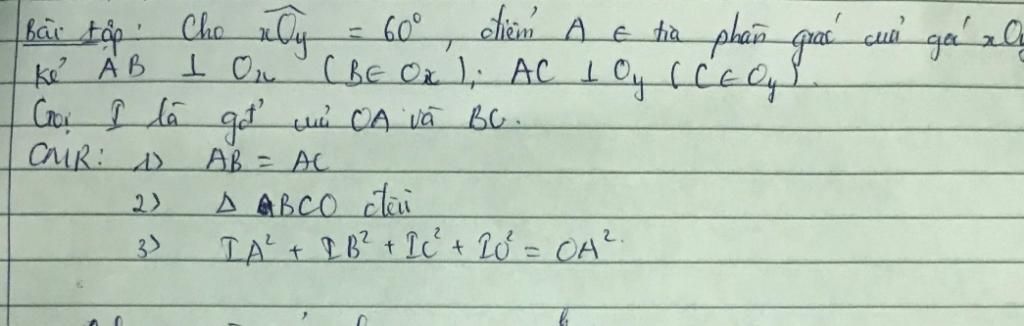 Bài tập: Cho xOy = 60°, điểm A ∈ tia phân giác của góc xOy
Kẻ AB ⊥ Ox (B∈ Ox); AC ⊥ Oy (C∈Oy).
Gọi I là gđ của OA và BC.
CMR: 1) AB = AC
2) Δ BCO đều
3) IA² + IB² + IC² + IO² = OA².